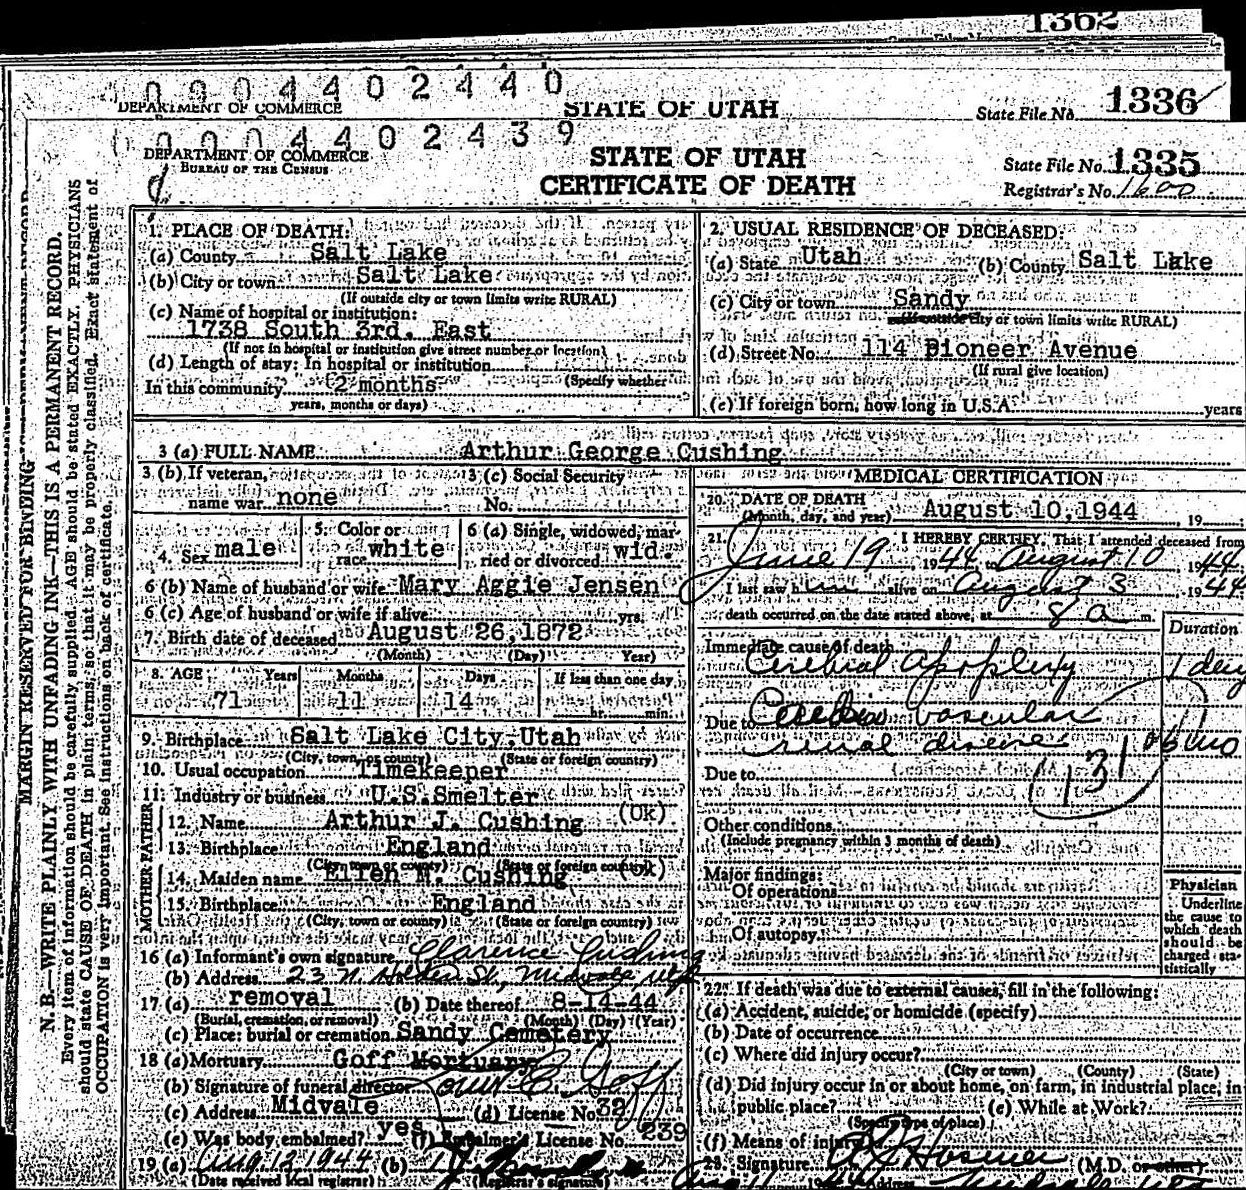 1362
0004402440
DEPARTMENT OF COMMERCE STATE OF UTAH State File No. 1336
0004402439
DEPARTMENT OF COMMERCE STATE OF UTAH State File No. 1335
BUREAU OF THE CENSUS CERTIFICATE OF DEATH Registrar's No. 1600
MARGIN RESERVED FOR BINDING
N. B.—WRITE PLAINLY WITH UNFADING INK—THIS IS A PERMANENT RECORD.
Every item of information should be carefully supplied. AGE should be stated EXACTLY. PHYSICIANS
should state CAUSE OF DEATH in plain terms, so that it may be properly classified. Exact statement of
OCCUPATION is very important. See instructions on back of certificate.
1. PLACE OF DEATH:
(a) County Salt Lake
(b) City or town Salt Lake
(If outside city or town limits write RURAL)
(c) Name of hospital or institution:
1738 South 3rd. East
(If not in hospital or institution give street number or location)
(d) Length of stay: In hospital or institution
(Specify whether
In this community 2 months
years, months or days)
2. USUAL RESIDENCE OF DECEASED:
(a) State Utah (b) County Salt Lake
(c) City or town Sandy
city or town limits write RURAL)
(d) Street No. 114 Pioneer Avenue
(If rural give location)
(e) If foreign born, how long in U.S.A. years
3 (a) FULL NAME Arthur George Cushing
3 (b) If veteran, name war none
3 (c) Social Security No.
4. Sex male
5. Color or race white
6 (a) Single, widowed, married or divorced wid.
6 (b) Name of husband or wife Mary Aggie Jensen
6 (c) Age of husband or wife if alive yrs.
7. Birth date of deceased August 26, 1872
(Month) (Day) Year)
8. AGE Years Months Days If less than one day
71 11 14 hr. min.
9. Birthplace Salt Lake City, Utah
(City, town, or county) (State or foreign country)
10. Usual occupation Timekeeper
11. Industry or business U.S.Smelter
FATHER
12. Name Arthur J. Cushing (Ok)
13. Birthplace England
(City, town or county) (State or foreign country)
MOTHER
14. Maiden name Ellen M. Cushing (Ok)
15. Birthplace England
(City, town or county) (State or foreign country)
16 (a) Informant's own signature Clarence Cushing
(b) Address 23 N. Holden St., Midvale, Utah
17 (a) removal (b) Date thereof 8-14-44
(Burial, cremation, or removal) (Month) (Day) (Year)
(c) Place: burial or cremation Sandy Cemetery
18 (a) Mortuary Goff Mortuary
(b) Signature of funeral director Goff
(c) Address Midvale (d) License No. 32
(e) Was body embalmed? yes (f) Embalmer's License No. 239
19 (a) Aug. 12, 1944 (b)
(Date received local registrar) (Registrar's signature)
MEDICAL CERTIFICATION
20. DATE OF DEATH
(Month, day, and year) August 10, 1944, 19
21. I HEREBY CERTIFY, That I attended deceased from
June 19, 1944 to August 10 1944
I last saw him alive on August 3 1944
death occurred on the date stated above, at 8 a m.
Duration
Immediate cause of death
Cerebral apoplexy 1 day
Due to vascular
renal disease 6 mo
131
Due to
Other conditions
(Include pregnancy within 3 months of death)
Major findings:
Of operations
Of autopsy
Physician
Underline
the cause to
which death
should be
charged sta-
tistically
22. If death was due to external causes, fill in the following:
(a) Accident, suicide, or homicide (specify)
(b) Date of occurrence
(c) Where did injury occur?
(City or town) (County) (State)
(d) Did injury occur in or about home, on farm, in industrial place, in
public place? (e) While at Work?
(Specify type of place)
(f) Means of injury
23. Signature (M.D. or other)
Address